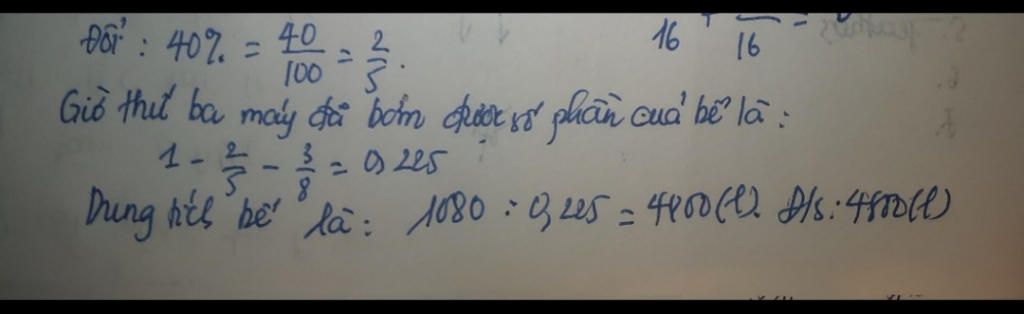 Đổi : 40% = 40/100 = 2/5.
16 + /16 =
Giờ thứ ba máy đã bơm được số phần của bể là :
1 - 2/5 - 3/8 = 0,225
Dung tích bể là : 1080 : 0,225 = 4800(l). Đ/s : 4800(l)